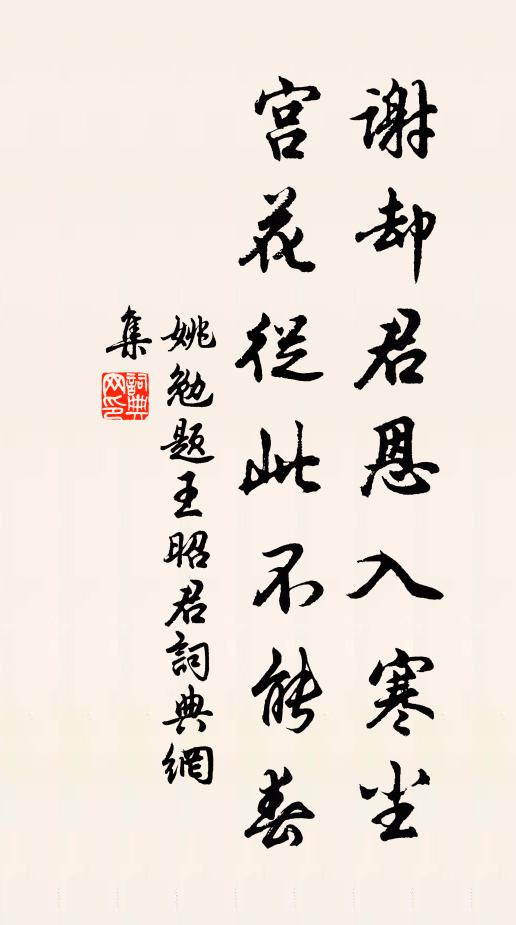 谢却君恩入寒尘
宫花從此不能春
姚勉题王昭君詞典網
集
詞典网印